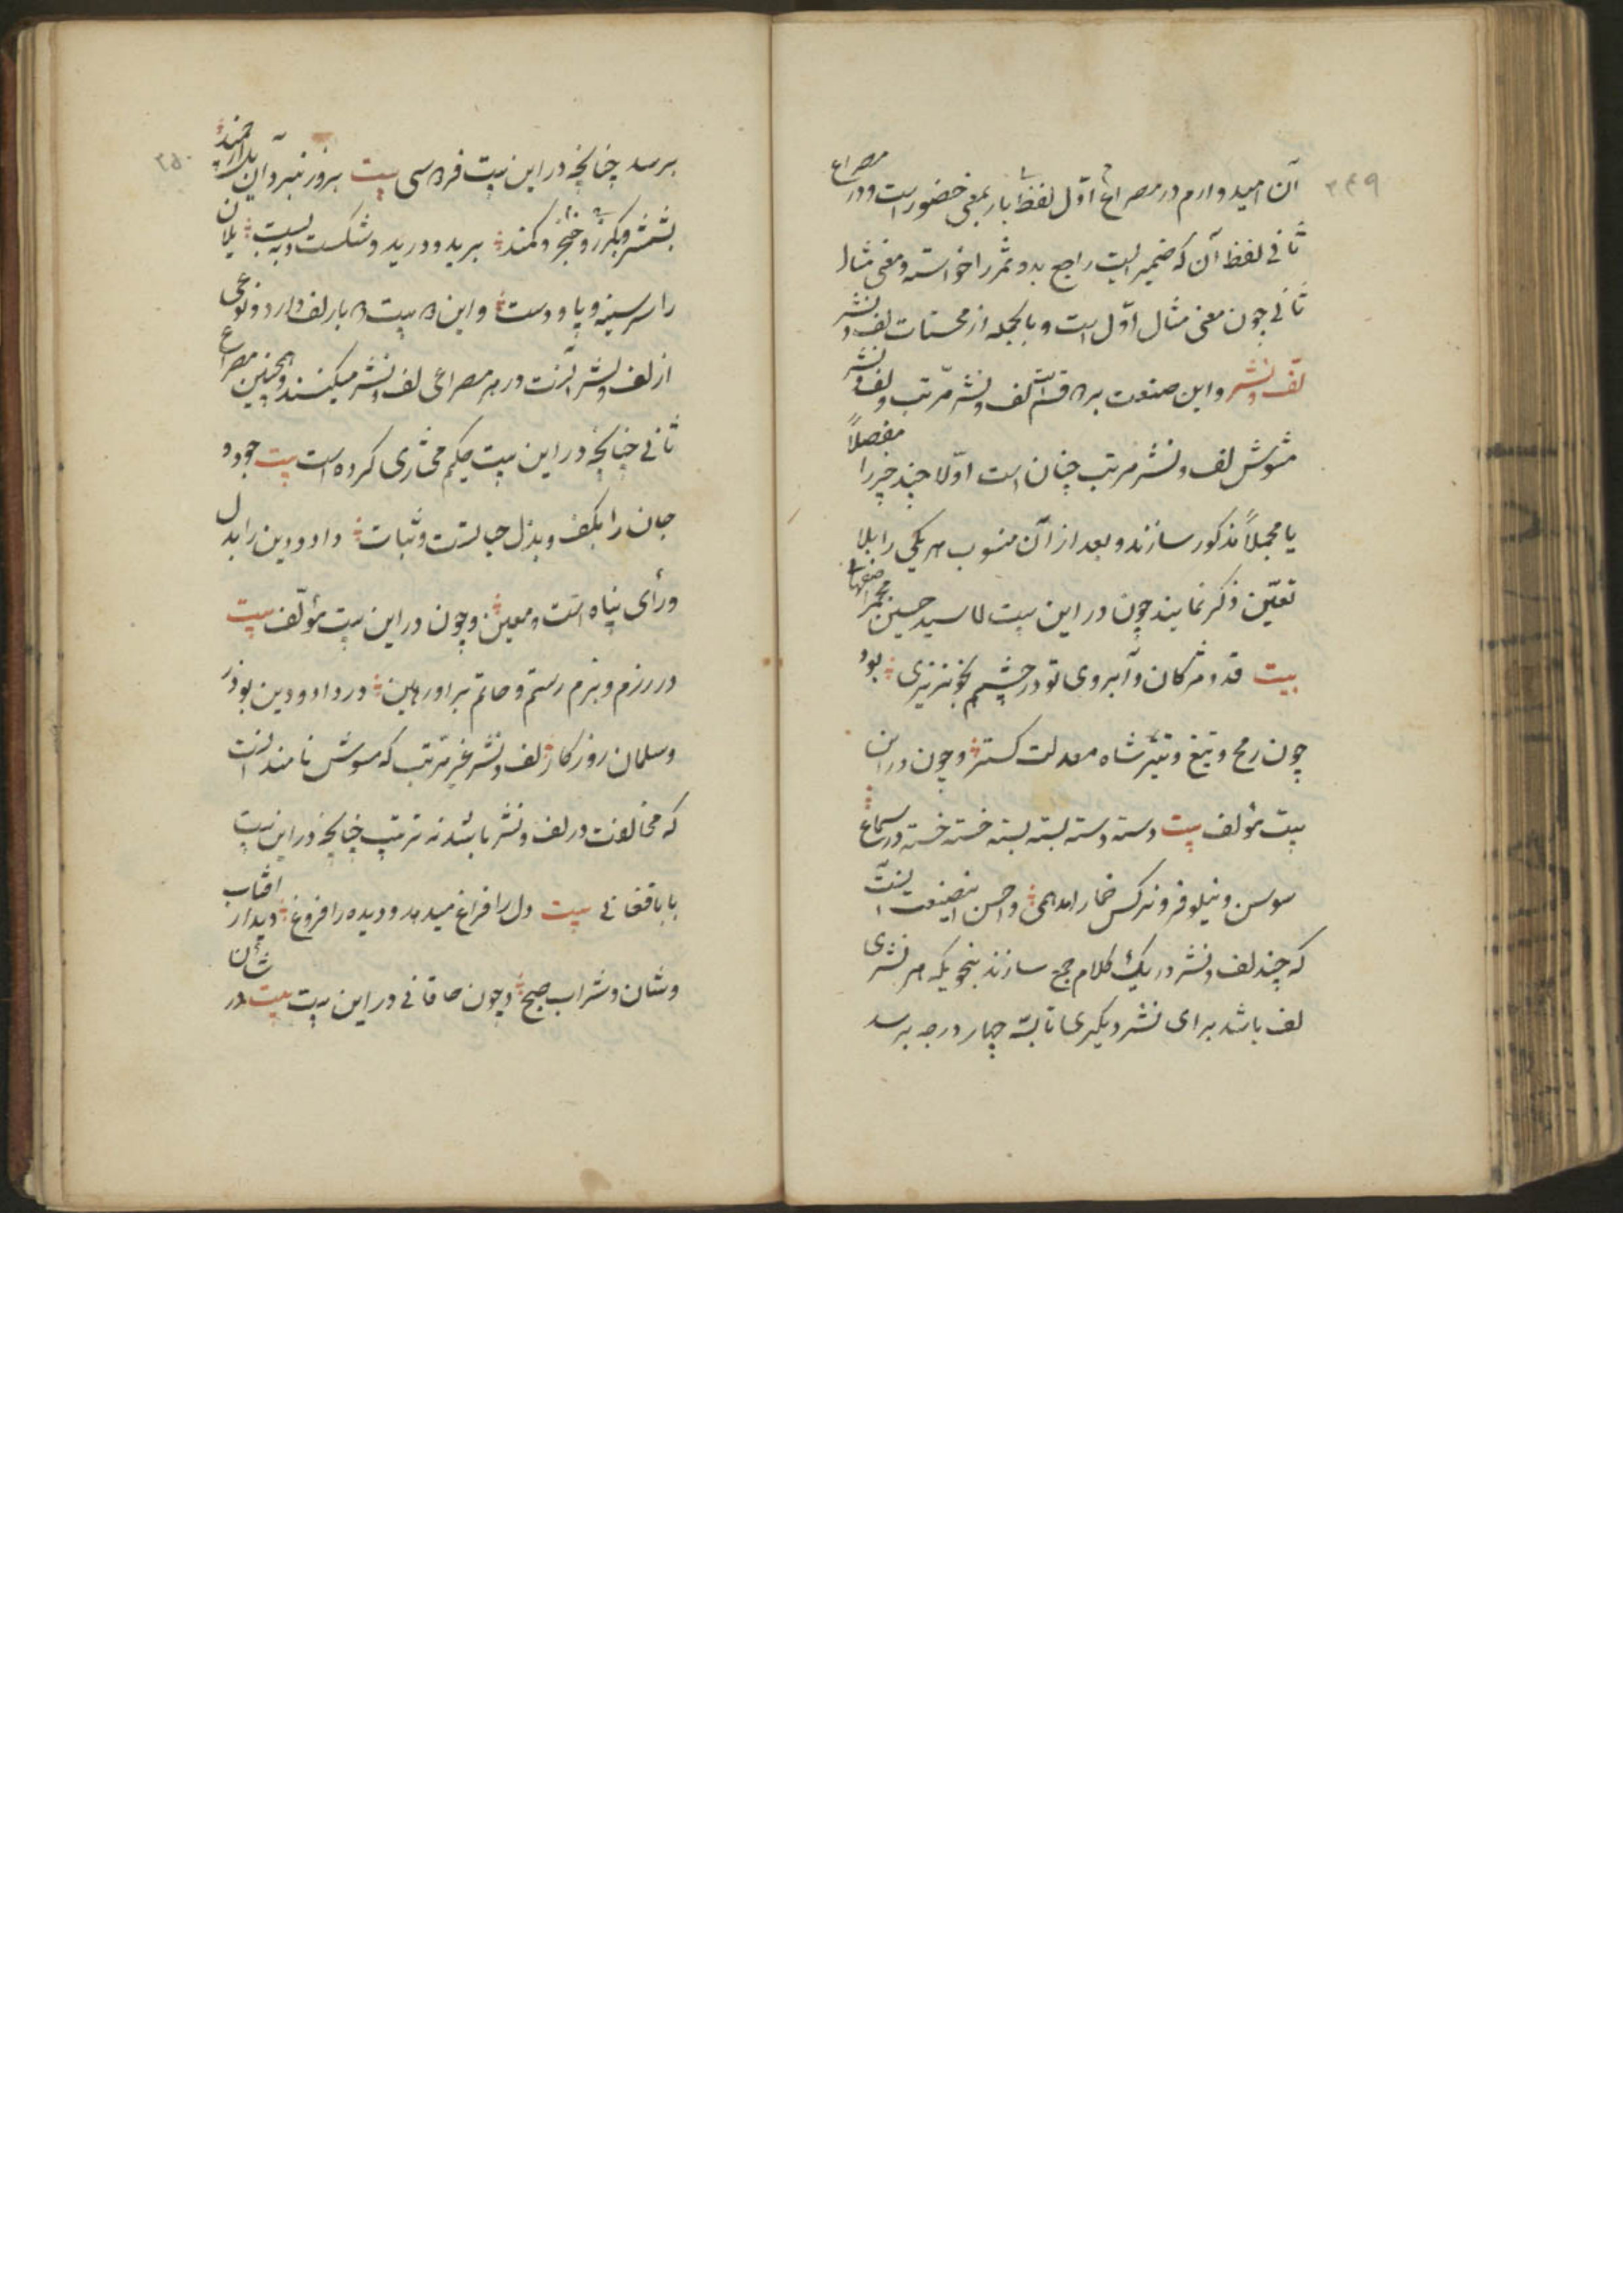 ۳۴۹
آن امیدوارم در مصراع اوّل لفظ بار بمعنی حضور است و در مصراع
ثانی لفظ آن که ضمیریست راجع بدو ثمر را خواسته و معنی مثال
ثانی چون معنی مثال اوّل است و بالجمله از محسنات لف و نشر
لفّ و نشر و این صنعت بر قسم است لف و نشر مرّتب و لف و نشر
مشوش لف و نشر مرتب چنان است اوّلا چند چیز را مفصلاً
یا مجملاً مذکور سازند و بعد از آن منسوب هر یکی را بلا
تعیّن ذکر نمایند چون در این بیت سید حسین
بیت قد و مژکان و ابروی تو در چشم بخونریزی بود
چون رمح و تیغ و تیر شاه معدلت کستر و چون در این
بیت مؤلف بیت دسته دسته بسته بسته خسته خسته در سماع
سوسن و نیلوفر و نرکس خمار و احسن اینصنعت اینست
که چند لف و نشر در یک کلام جمع سازند بنحویکه هر نشری
لف باشد برای نشر دیکری تا بسه چهار درجه برسد
۲۵۰
برسد چنانچه در این بیت فردوسی بیت بروز نبرد آن یل ارجمند
بشمشیر و بکرز و خنجر و کمند برید و درید و شکست و ببست یلان
را سر سینه و پا و دست و این بیت بار لف دارد و نوعی
از لف و نشر آنست در هر مصراعی لف و نشر میکنند و همچنین مصراع
ثانی چنانچه در این بیت حکیم مختاری کرده است بیت جود و
جان را بکف و بذل حیاتست و ثبات داد و دین را بدل
و رأی پناه است و معین و چون در این بیت مؤلّف بیت
در رزم و بزم رستم و حاتم در داد و دین بوذر
و سلمان روزکار لف و نشر غیر مرّتب که مسوش نامند آنست
که مخالفت در لف و نشر باشد نه ترتیب چنانچه در این بیت
بابا فغانی بیت دل را فراغ میدهد و دیده را فروغ دیدار آفتاب
وشان و شراب صبح و چون خاقانی در این بیت بیت در شأن